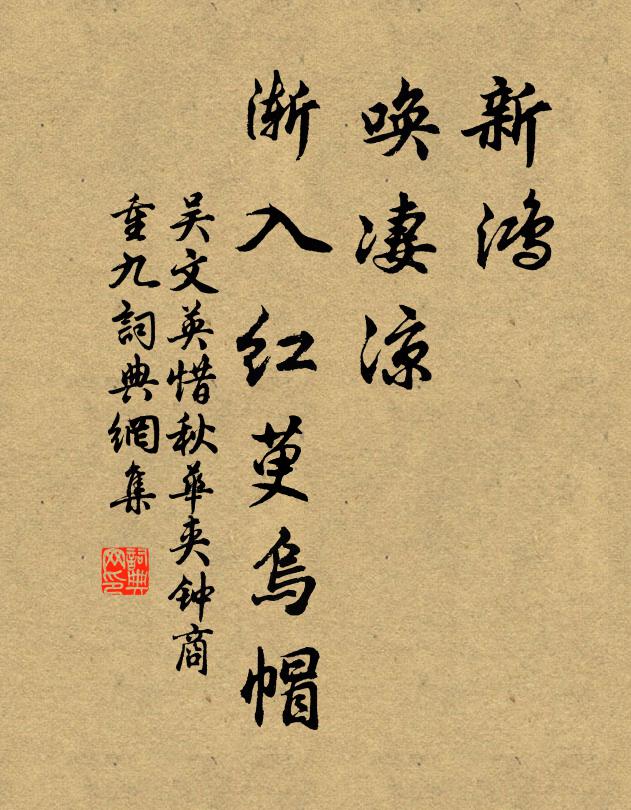 新鸿
唤凄凉
渐入红萸乌帽
吴文英惜秋华夹钟商
重九詞典網集
詞典网印